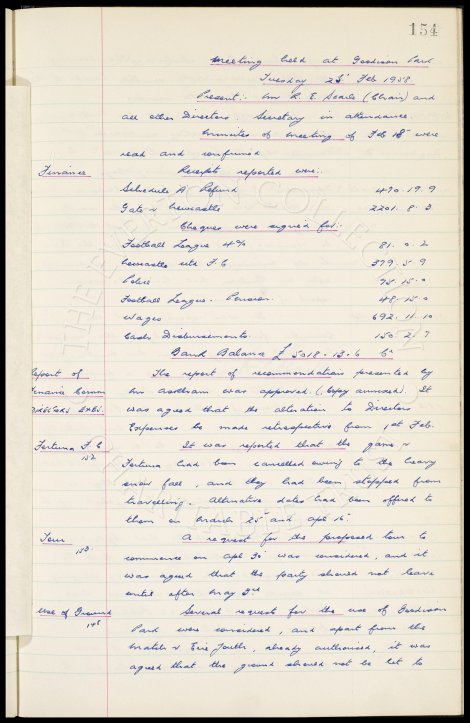 154
Meeting held at Goodison Park
Tuesday 25 Feb 1958
Present:- Mr R. E. Searle (Chair) and
all other Directors. Secretary in attendance.
Minutes of meeting of Feb 18 were
read and confirmed
Finance Receipts reported were:-
Schedule A Refund 470.19.9
Gate v Newcastle 2201.8.3
Cheques were signed for:-
Football League 4% 81.0.2
Newcastle Utd F C 379.5.9
Police 95.15.0
Football League. Pension. 48.15.0
Wages 692.11.10
Cash Disbursements. 150.2.7
Bank Balance £5018.13.6
Report of The report of recommendations presented by
Finance Comm Mr was approved. (Copy annexed). It
DIRECTORS EXES. was agreed that the alteration to Directors
Expenses be made retrospective from 1st Feb.
Fortuna F. C It was reported that the game v
152 Fortuna had been cancelled owing to the heavy
snow fall, and they had been stopped from
travelling. Alternative dates had been offered to
them on March 25 and Apl 15.
Tour A request for the proposed tour to
153 commence on Apl 30 was considered, and it
was agreed that the party should not leave
until after May 3rd
Use of Ground Several request for the use of Goodison
148 Park were considered, and apart from the
match v Eire Youth, already authorised, it was
agreed that the ground should not be let to
THE EVERTON COLLECTION